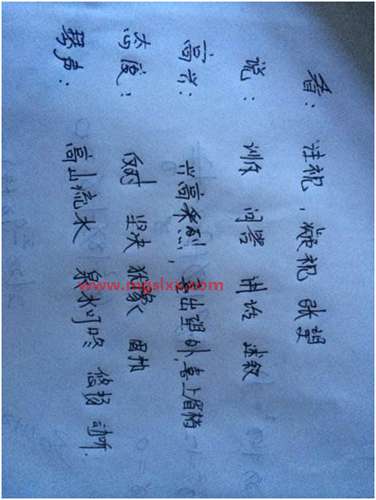 看：注视，凝视 张望
说： 问答 讲话 述叙
高兴：兴高采烈，喜出望外，喜上眉梢
态度：反对 坚决 犹豫 固执
琴声：高山流水 泉水叮咚 悠扬 动听